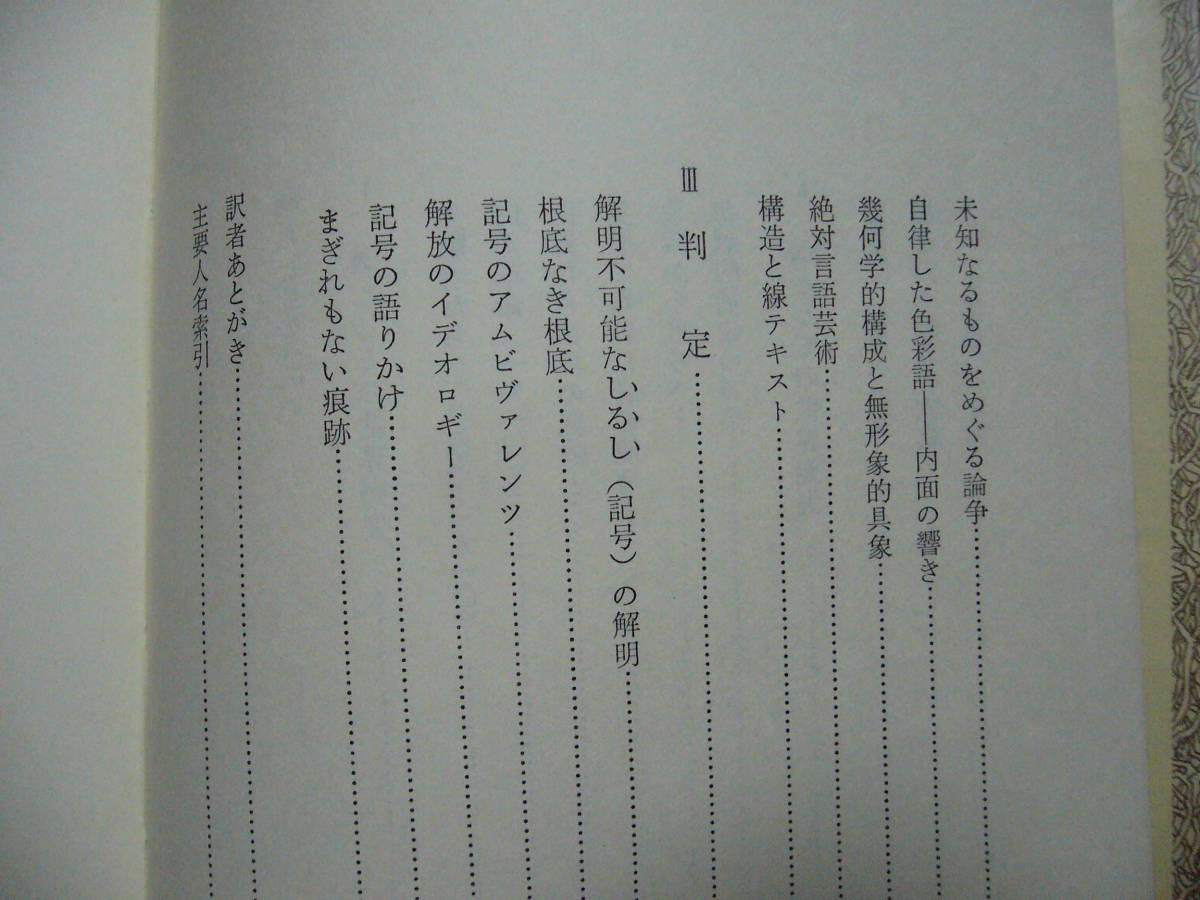 未知なるものをめぐる論争
自律した色彩語――内面の響き
幾何学的構成と無形象的具象
絶対言語芸術
構造と線テキスト
Ⅲ 判定
解明不可能なしるし（記号）の解明
根底なき根底
記号のアムビヴァレンツ
解放のイデオロギー
記号の語りかけ
まぎれもない痕跡
訳者あとがき
主要人名索引